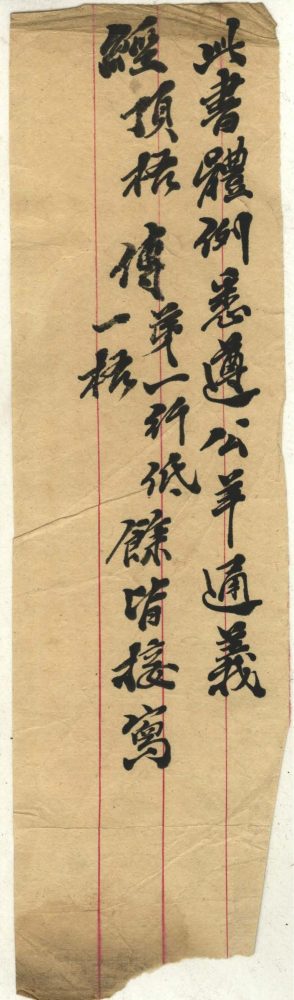 此書體例悉遵公羊通義
經頂格 傳苐一行低一格 餘皆接寫